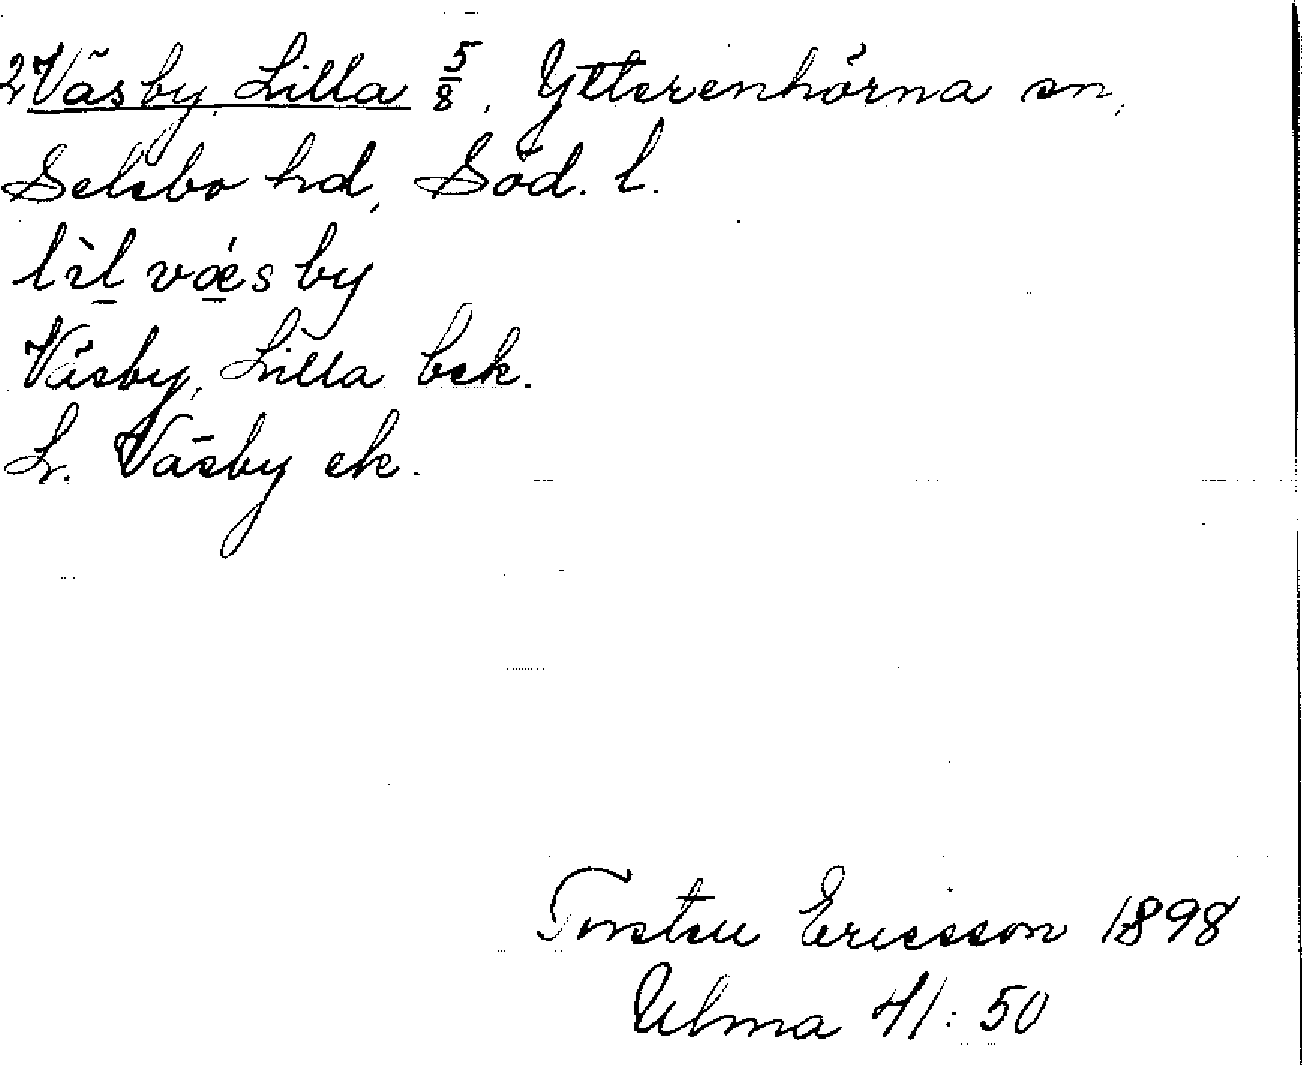 2 Väsby, Lilla 5/8, Ytterenhörna sn,
Selebo hd, Söd. l.
lìl vǽsby
Väsby, Lilla bek.
L. Väsby ek.
Torsten Ericsson 1898
Ulma 41:50